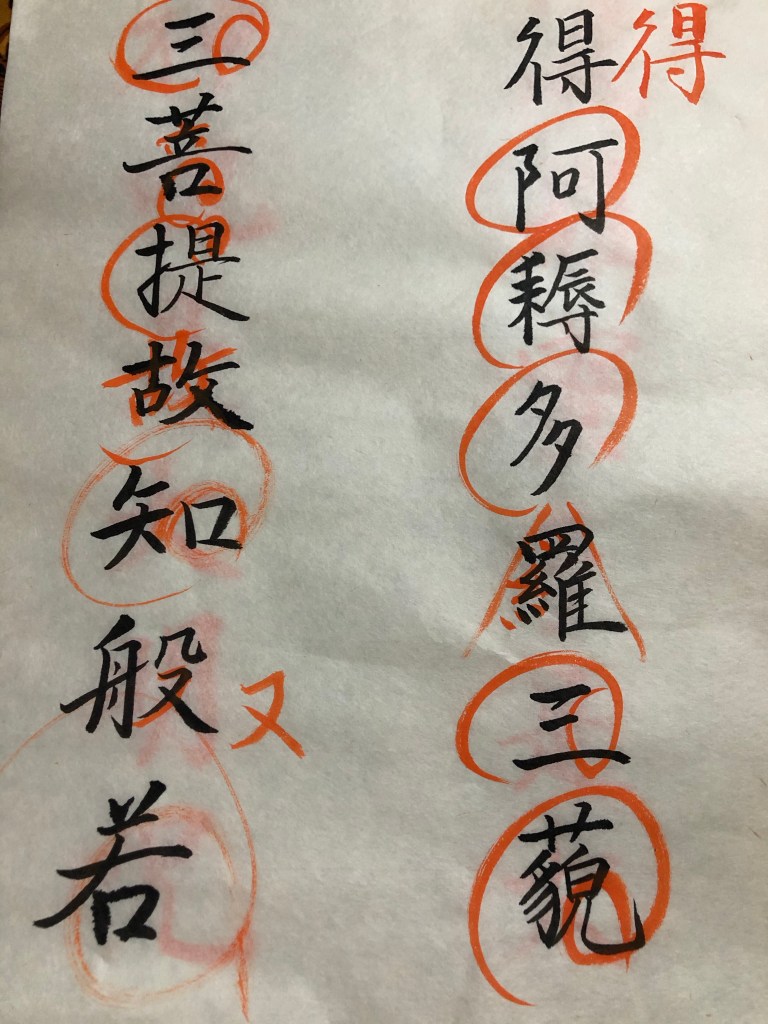 得阿耨多羅三藐
得
三菩提故知般若
又